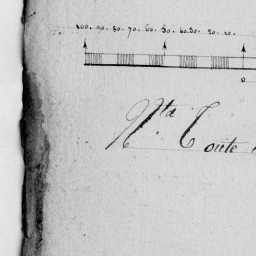 100. 90. 80. 70. 60. 50. 40. 30. 20. 10.
0
Nta Toute